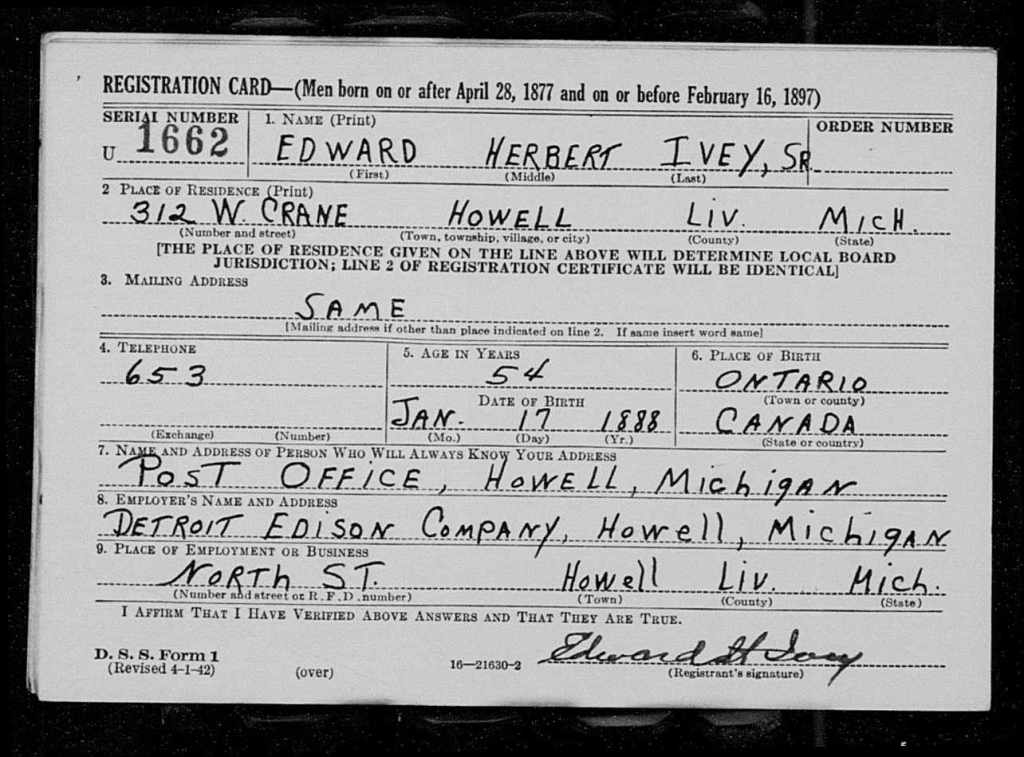 REGISTRATION CARD—(Men born on or after April 28, 1877 and on or before February 16, 1897)
SERIAL NUMBER 1. NAME (Print) ORDER NUMBER
U 1662 EDWARD HERBERT IVEY, SR.
(First) (Middle) (Last)
2 PLACE OF RESIDENCE (Print)
312 W. CRANE HOWELL LIV. MICH.
(Number and street) (Town, township, village, or city) (County) (State)
[THE PLACE OF RESIDENCE GIVEN ON THE LINE ABOVE WILL DETERMINE LOCAL BOARD
JURISDICTION; LINE 2 OF REGISTRATION CERTIFICATE WILL BE IDENTICAL]
3. MAILING ADDRESS
SAME
[Mailing address if other than place indicated on line 2. If same insert word same]
4. TELEPHONE 5. AGE IN YEARS 6. PLACE OF BIRTH
653 54 ONTARIO
DATE OF BIRTH (Town or county)
JAN. 17 1888 CANADA
(Exchange) (Number) (Mo.) (Day) (Yr.) (State or country)
7. NAME AND ADDRESS OF PERSON WHO WILL ALWAYS KNOW YOUR ADDRESS
POST OFFICE, HOWELL, MichigAN
8. EMPLOYER'S NAME AND ADDRESS
DETROIT EDISON COMPANY, Howell, MichigAN
9. PLACE OF EMPLOYMENT OR BUSINESS
NORTh ST. Howell LIV. Mich.
(Number and street or R. F. D. number) (Town) (County) (State)
I AFFIRM THAT I HAVE VERIFIED ABOVE ANSWERS AND THAT THEY ARE TRUE.
Edward H Ivey
D. S. S. Form 1
(Revised 4-1-42) (over) 16—21630-2 (Registrant's signature)